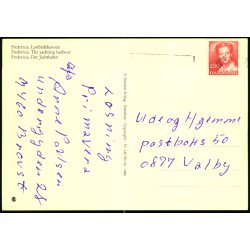 Fredericia. Lystbådehavnen
Fredericia. The yachting harbour
Fredericia. Der Jachthafen
Løsning
Primavera
c/o
Anne Poulsen
undergyden 28
9460 Brovst
Ude og Hjemme
postboks 50
0877 Valby